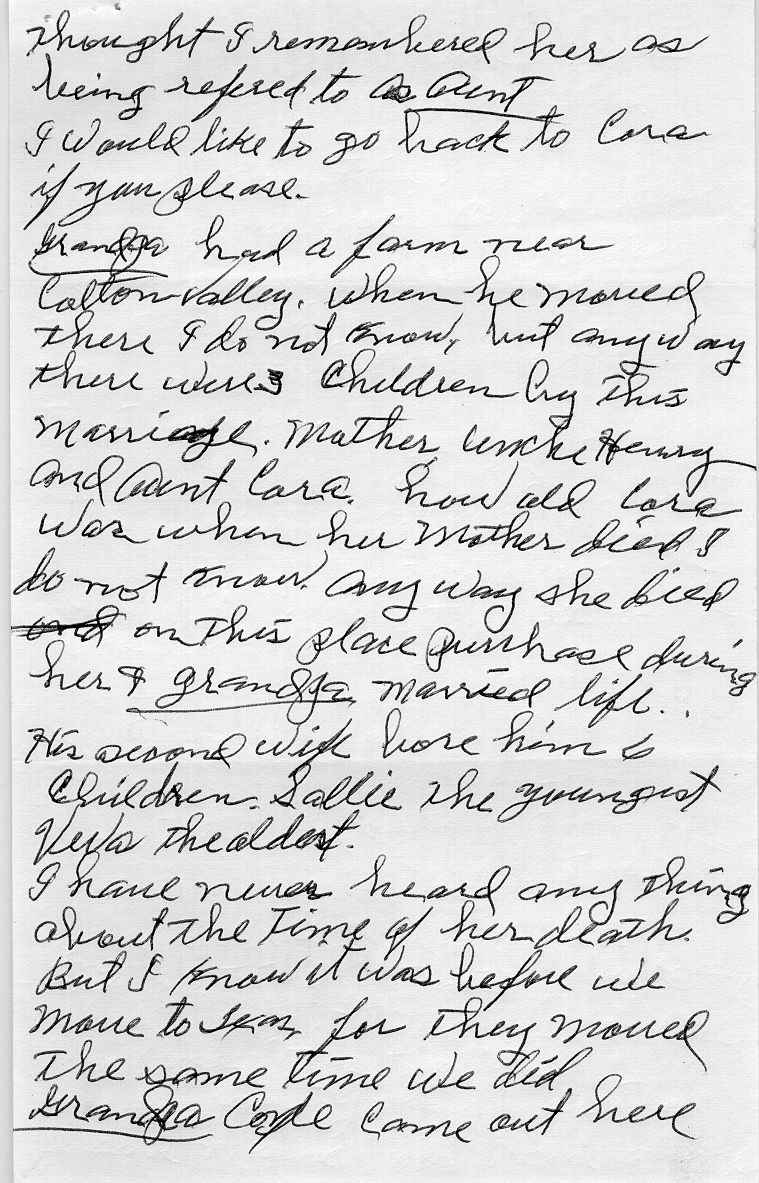 thought I remembered her as
being refered to as Aunt
I would like to go back to Cora
if you please.
Grandpa had a farm near
Cotton Valley. When he moved
there I do not know, but anyway
there were 3 Children by this
marriage. Mother, Uncle Henry
and Aunt Cora. how old Cora
was when her Mother died I
do not know. Any way she died
and on this place purchase during
her & grandpa married life..
His second wife bore him 6
Children. Sallie the youngest
the oldest.
I have never heard any thing
about the time of her death.
But I know it was before we
move to Texas, for they moved
the same time we did
Grandpa Coyle came out here